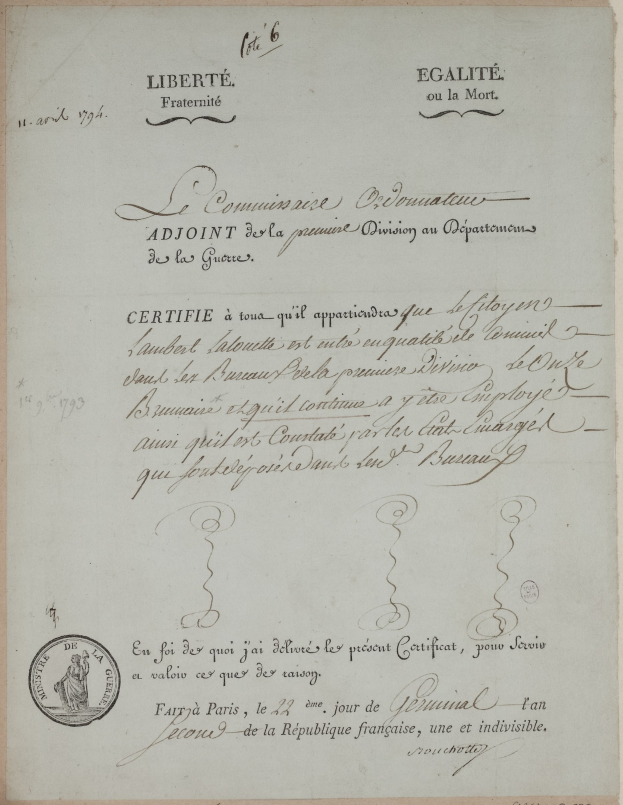 Coté 6
LIBERTÉ.
Fraternité
EGALITÉ.
ou la Mort.
11. avril 1794.
Le Commissaire Ordonnateur
ADJOINT de la première Division au Département
de la Guerre.
CERTIFIE à tous qu'il appartiendra que le Citoyen
Lambert Lalouette est entré en qualité de Commis
dans les Bureaux de la première Division, Le Onze
Brumaire* et qu'il continue a y être Employé
* 1er 9bre 1793
ainsi qu'il est Constaté par les Emargés
qui sont déposés dans lesd. Bureaux
MINISTRE DE LA GUERRE
En foi de quoi j'ai délivré le présent Certificat, pour servir
et valoir ce que de raison.
FAIT à Paris, le 22 ème. jour de Germinal l'an
Second de la République française, une et indivisible.